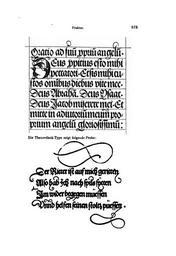 Fraktur.
Oratio ad suū ꝓpriū angelū.
Deus propicius esto mihi
peccatori. Et sis mihi cu-
stos omnibus diebus vite mee
Deus Abrahā. Deus Ysaac
Deus Jacob miserere mei. Et
mitte in adiutoriū meū pro-
prium angelū gloriosissimū:
Die Theuerdank-Type zeigt folgende Probe:
Der Ritter ist auf mich geritten
Also hab Ich nach spies
Im wider begegen muessen
Vnnd helffen seinen stoltz puessen.